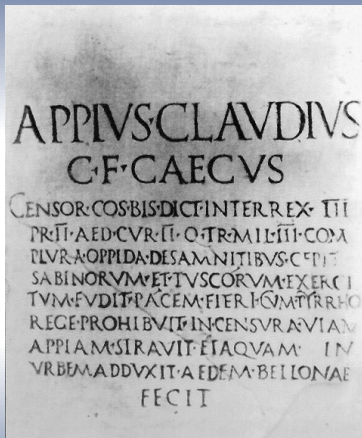 APPIVS·CLAVDIVS
C·F·CAECVS
CENSOR·COS·BIS·DICT·INTERREX·III
PR·II·AED·CVR·II·Q·TR·MIL·III·COM
PLVRA·OPPIDA·DE·SAMNITIBVS·CEPIT
SABINORVM·ET·TVSCORVM·EXERCI
TVM·FVDIT·PACEM·FIERI·CVM·PYRRHO
REGE·PROHIBVIT·IN·CENSVRA·VIAM
APPIAM·STRAVIT·ET·AQVAM· IN
VRBEM·ADDVXIT·AEDEM·BELLONAE
FECIT